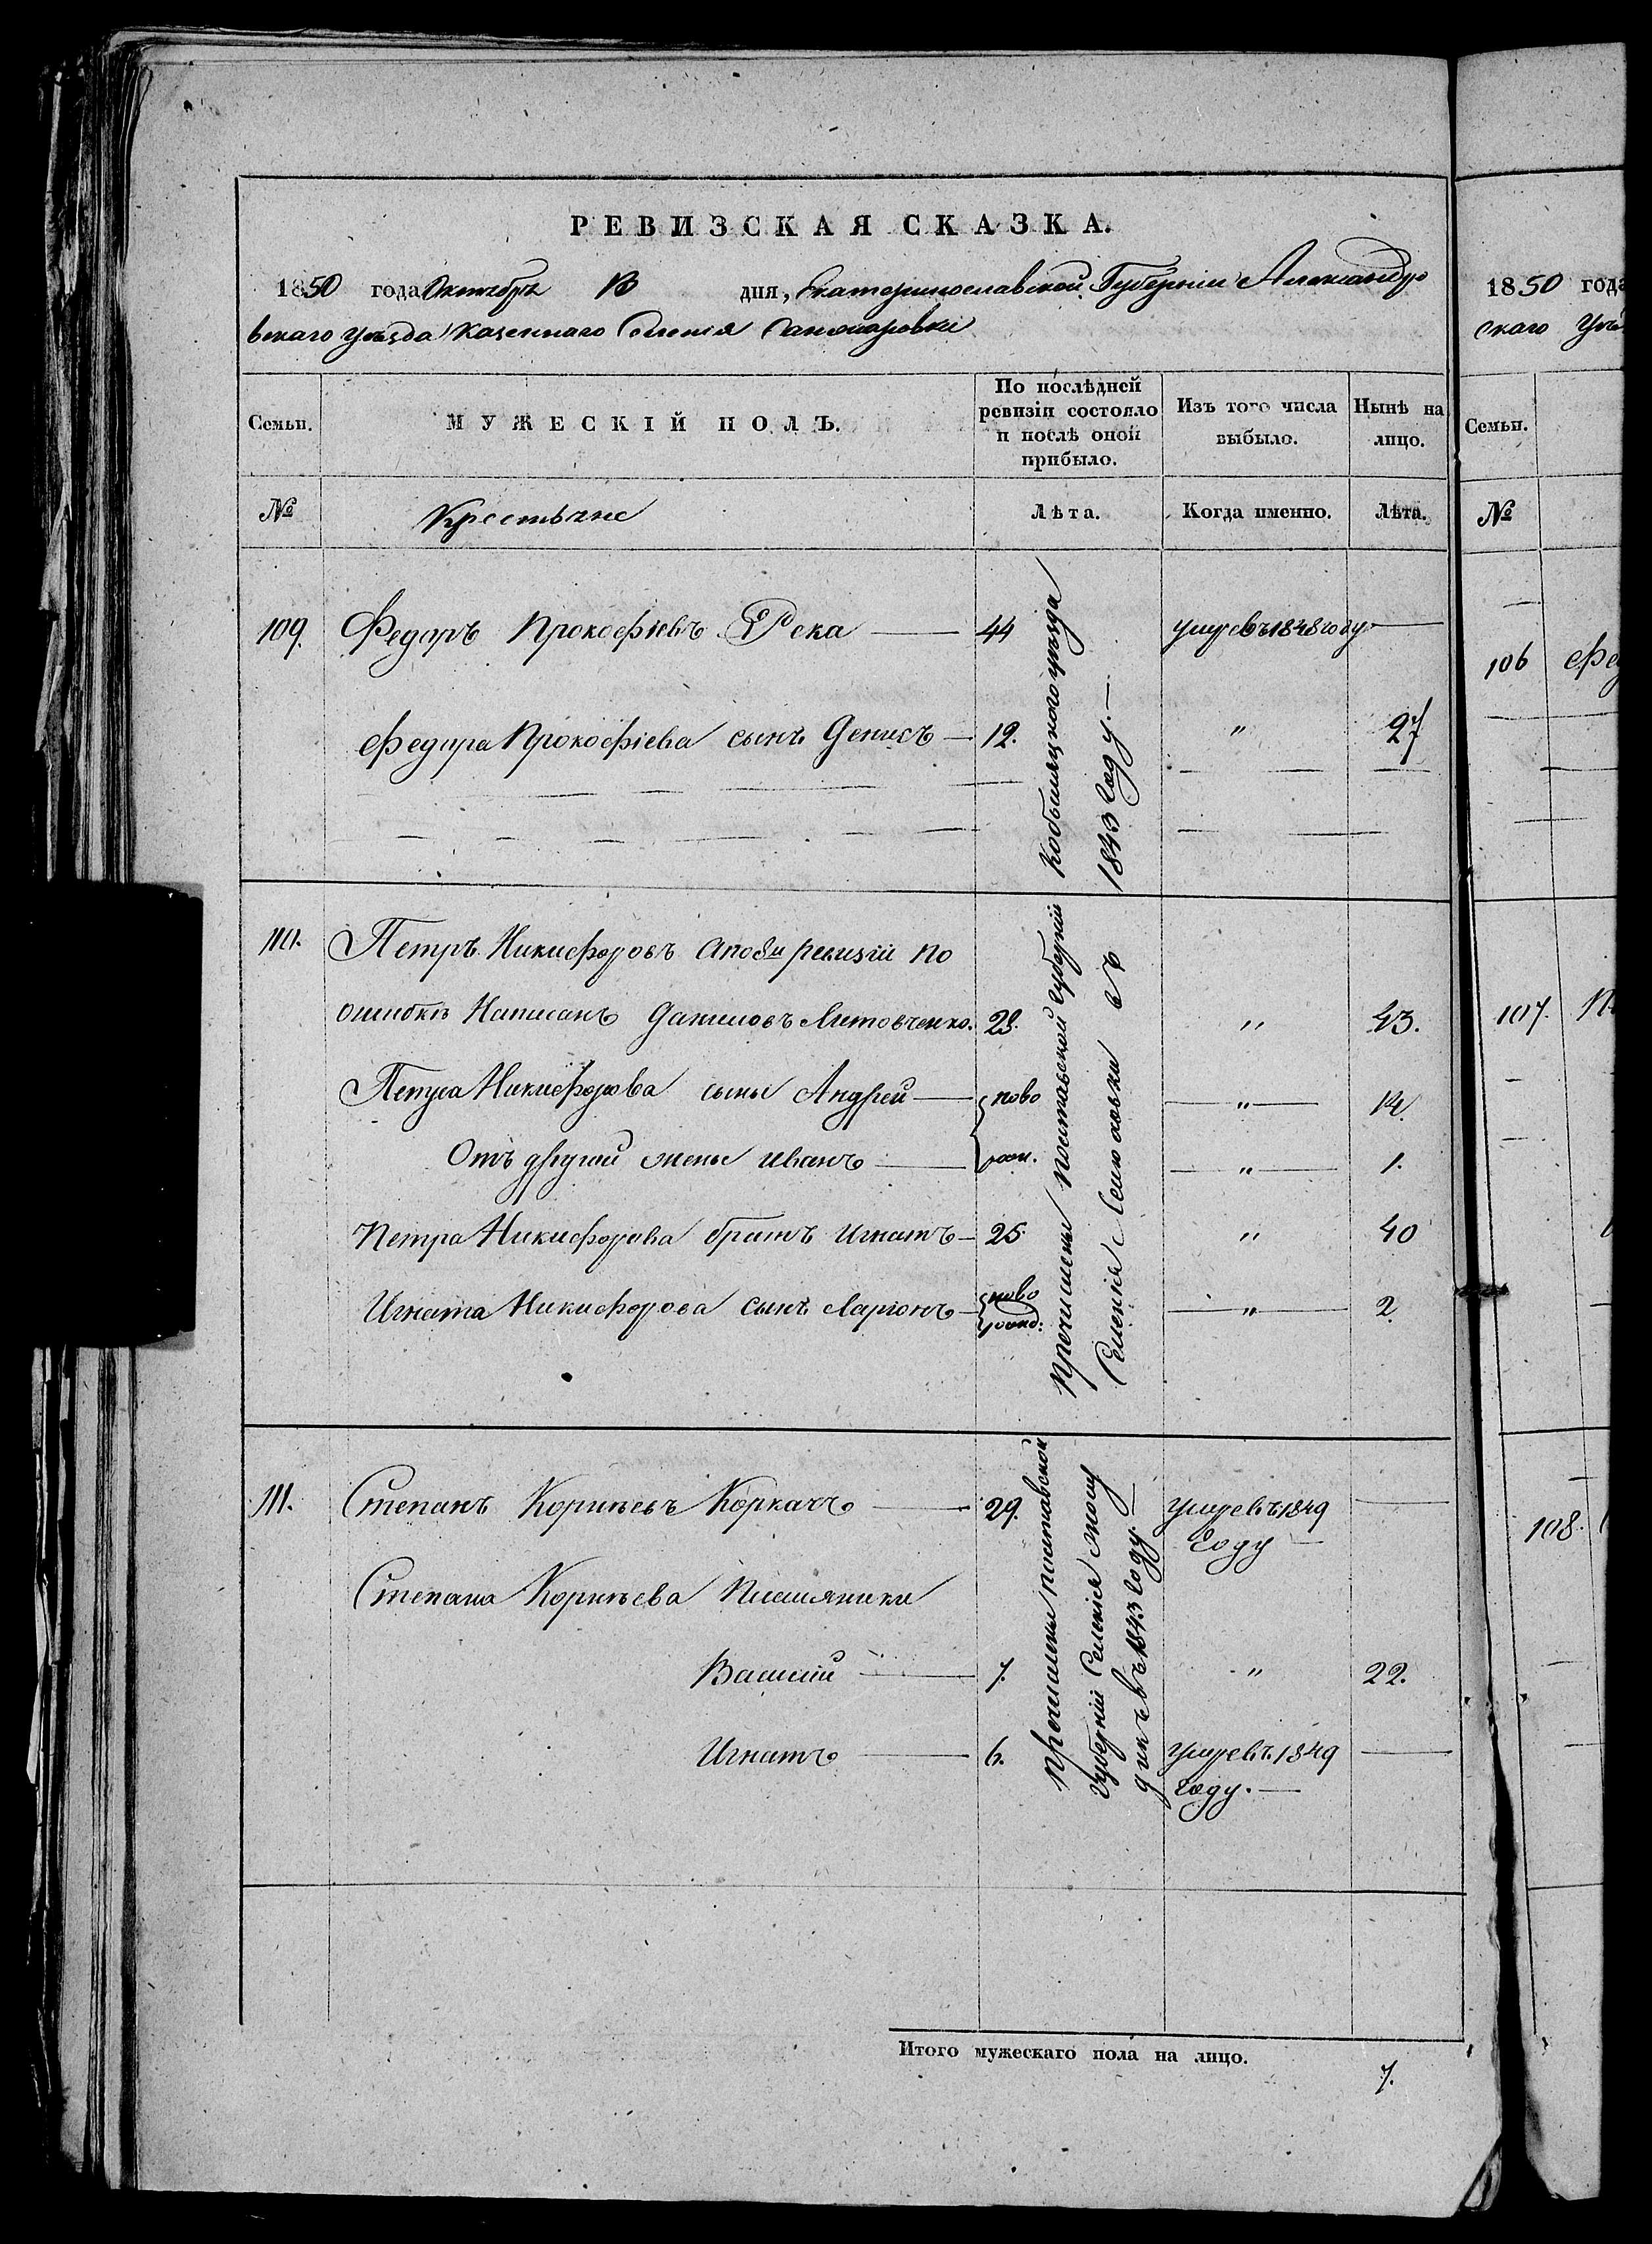 РЕВИЗСКАЯ СКАЗКА.
1850 года Октября дня, Екатеринославской Губерніи Александро
вскаго уѣзда Казеннаго Селенія
Семьи. МУЖЕСКІЙ ПОЛЪ. По послѣдней ревизіи состояло и послѣ оной прибыло. Изъ того числа выбыло. Нынѣ на лицо.
№ Крестьяне Лѣта. Когда именно. Лѣта.
109. Федоръ Прокофіевъ Река 44 умре въ 1848 году
Федора Прокофіева сынъ Денисъ 12. " 27
Кобыляцкого уезда
1843 году.
110. Петръ Никифоровъ а по 8й ревизіи по
ошибкѣ Написанъ Даниловъ Литовченко. 28. " 43.
Петра Никифорова сыны Андрей ново " 14
Отъ другой жены Иванъ рож. " 1.
Петра Никифорова братъ Игнатъ 25 " 40
Игната Никифорова сынъ Ларіонъ ново рожд: " 2
Причислены Полтавской Губерніи
Селенія съ
111. Степанъ Корнѣевъ Коркачъ 29. умре въ 1849
году
Степана Корнѣева Племяники
Василій 7. " 22.
Игнатъ 6. умре въ 1849
году.
Причислены Полтавской
Губерніи Селенія
въ 1843 году.
Итого мужескаго пола на лицо. 7.
1850 года
скаго
Семьи.
№
106
107.
108.